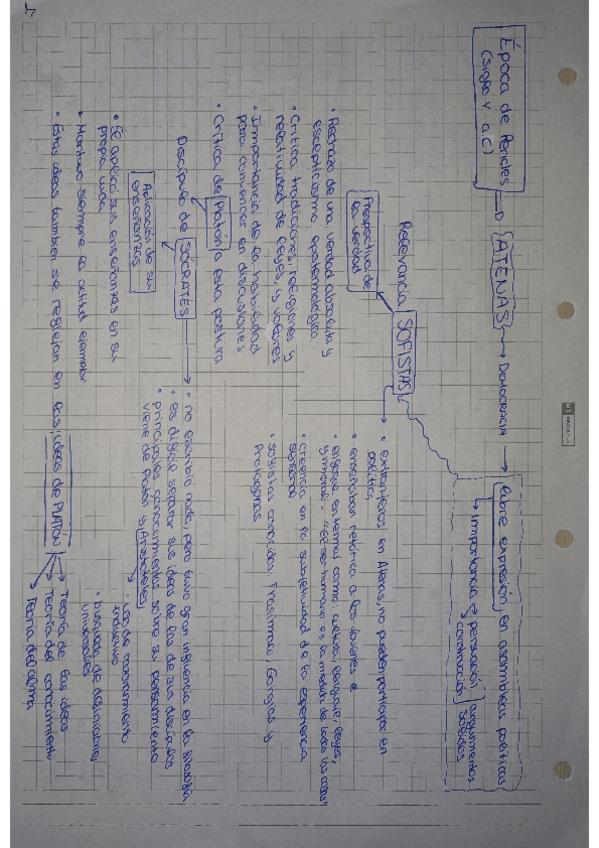 Época de Pericles
(Siglo V a.C)
ATENAS
DEMOCRACIA
libre expresión, en asambleas políticas
importancia
persuasión
construcción
argumentos
sólidos
SOFISTAS
Relevancia
Perspectiva de
la verdad
• Rechazo de una verdad absoluta y
escepticismo epistemológico
• Critica tradiciones, religiones y
relatividad de leyes, y valores
• Importancia de la habilidad
para convencer en discusiones
• Crítica de Platón a esta postura
• extranjeros en Atenas, no pueden participar en
política
• enseñaban retórica a los jóvenes e
• enfoque en temas como: cultura, lenguaje, leyes,
y moral - "El ser humano es la medida de todas las cosas"
• creencia en la subjetividad de la experiencia
sensorial
• sofistas conocidos: Trasímaco, Gorgias y
Protágoras
Discípulo de SÓCRATES
• no escribió nada, pero tuvo gran influencia en la filosofía
• es difícil separar sus ideas de las de sus discípulos
• principales conocimientos sobre su pensamiento
viene de Platón y Aristóteles
• uso de razonamiento
inductivo
• búsqueda de definiciones
universales
Aplicación de su
enseñanzas
• Él aplicó sus enseñanzas en su
propia vida
• Mantuvo siempre la actitud ejemplar
• Estas ideas también se reflejan en las ideas de PLATÓN
Teoría de las ideas
Teoría del conocimiento
Teoría del alma